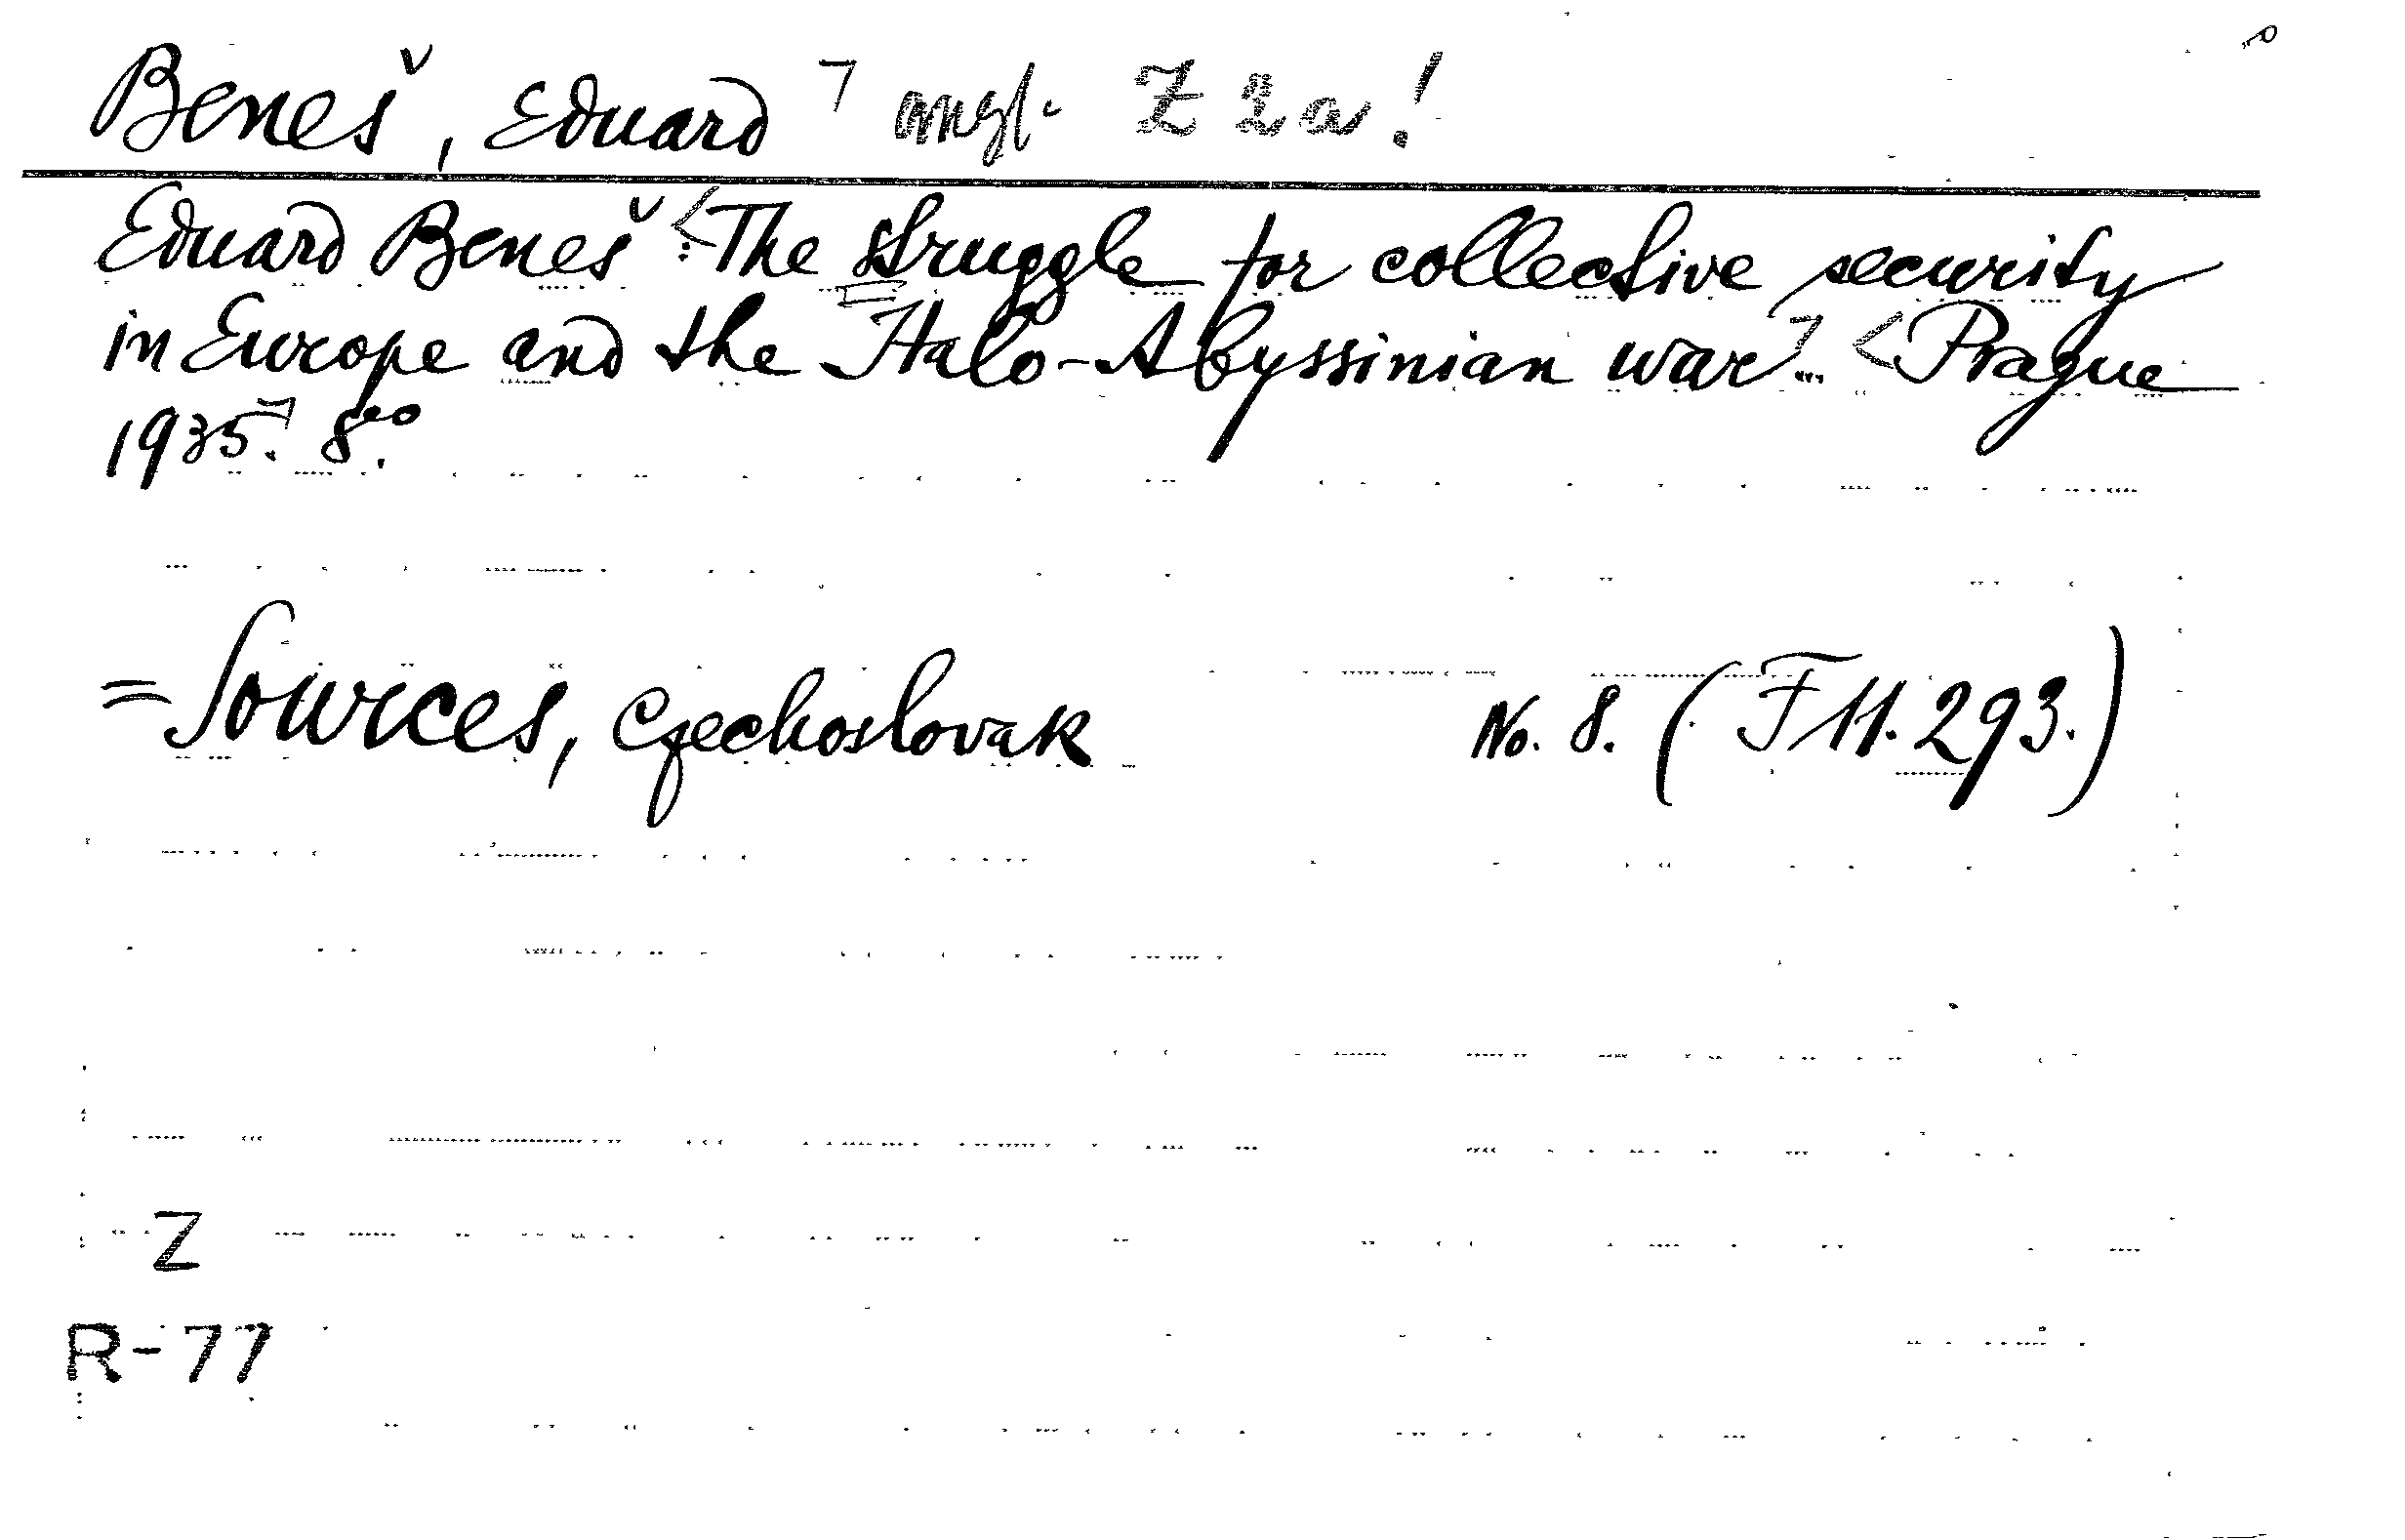 Beneš, Eduard ⌉ angl. Z 2a!
Eduard Beneš: <The struggle for collective security
in Europe and the Italo-Abyssinian war⌉. <Prague
1935⌉. 8°.
= Sources, Czechoslovak No. 8. (F 11.293.)
Z
R-77